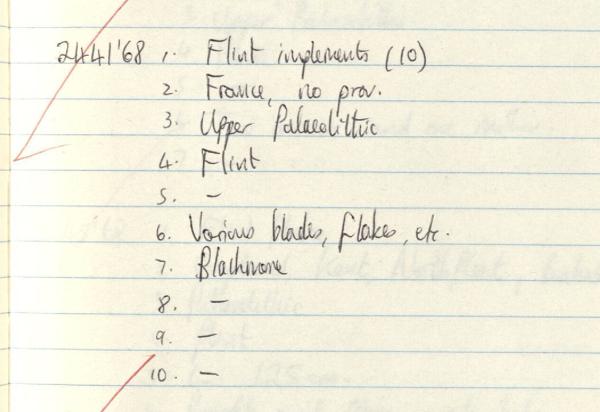 2441'68 1. Flint implements (10)
2. France, no prov.
3. Upper Palaeolithic
4. Flint
5. –
6. Various blades, flakes, etc.
7. Blackmore
8. –
9. –
10. –